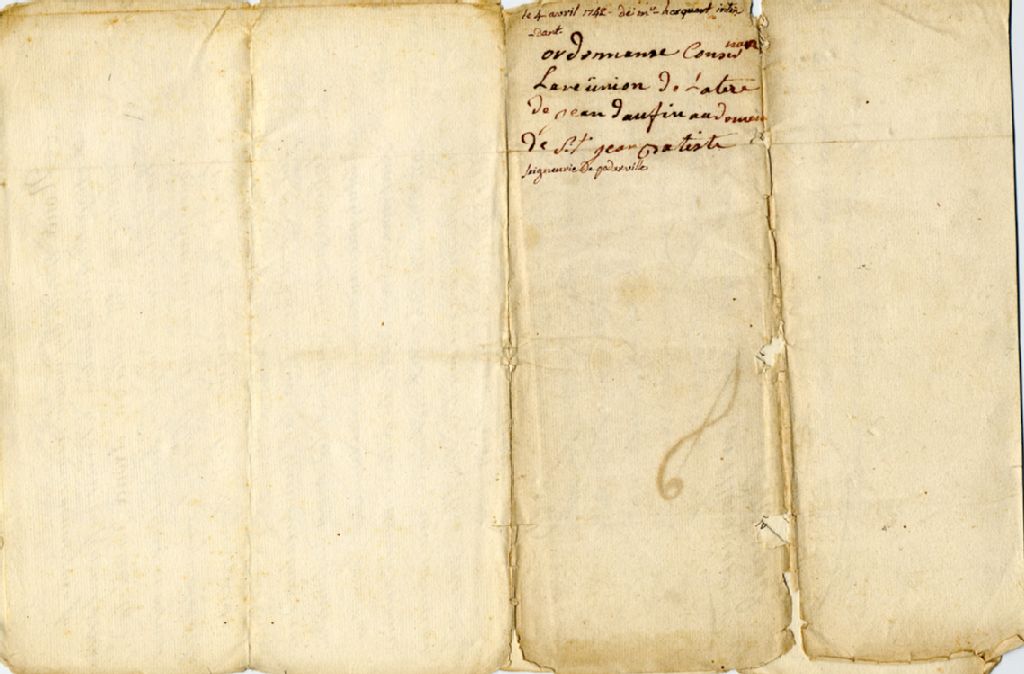 le 4 avril 1741 - de mr. hocquart inten
-dant
ordonnanse Conser nant
La reünion de La tere
de jean daufin au domein
de St jean Batiste
seigneurie De gaderville
6